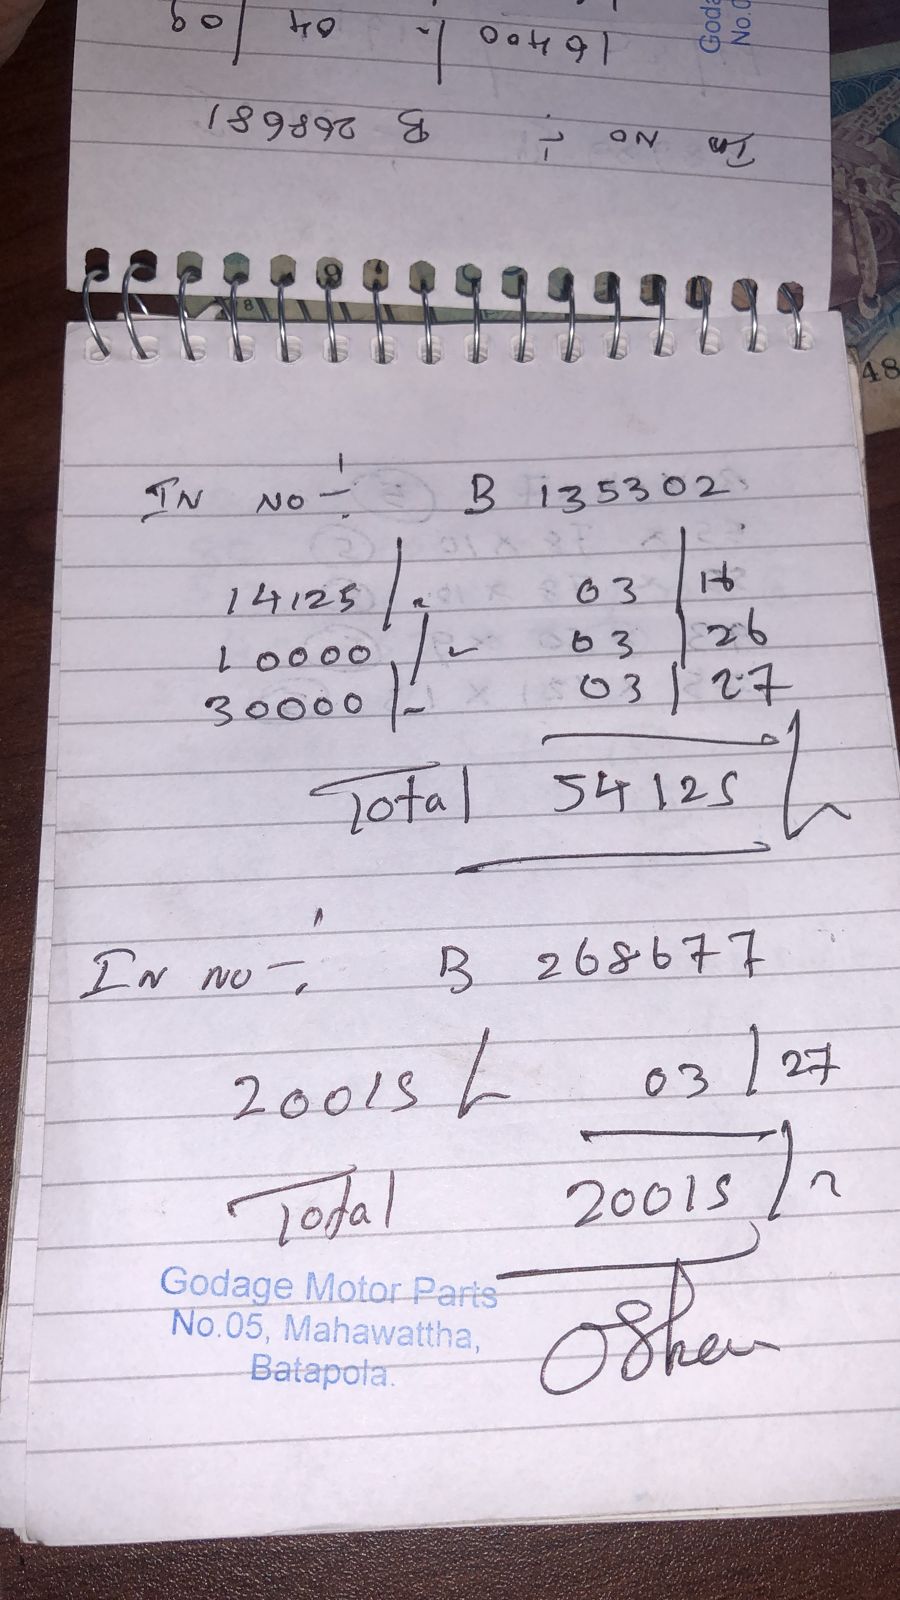 16400/- 04/09
In No :- B 268681
IN NO :- B 135302
14125/- 03/16
10000/- 03/26
30000/- 03/27
Total 54125/-
IN NO :- B 268677
20015/- 03/27
Total 20015/-
Godage Motor Parts
No.05, Mahawattha,
Batapola.
Oshan
48